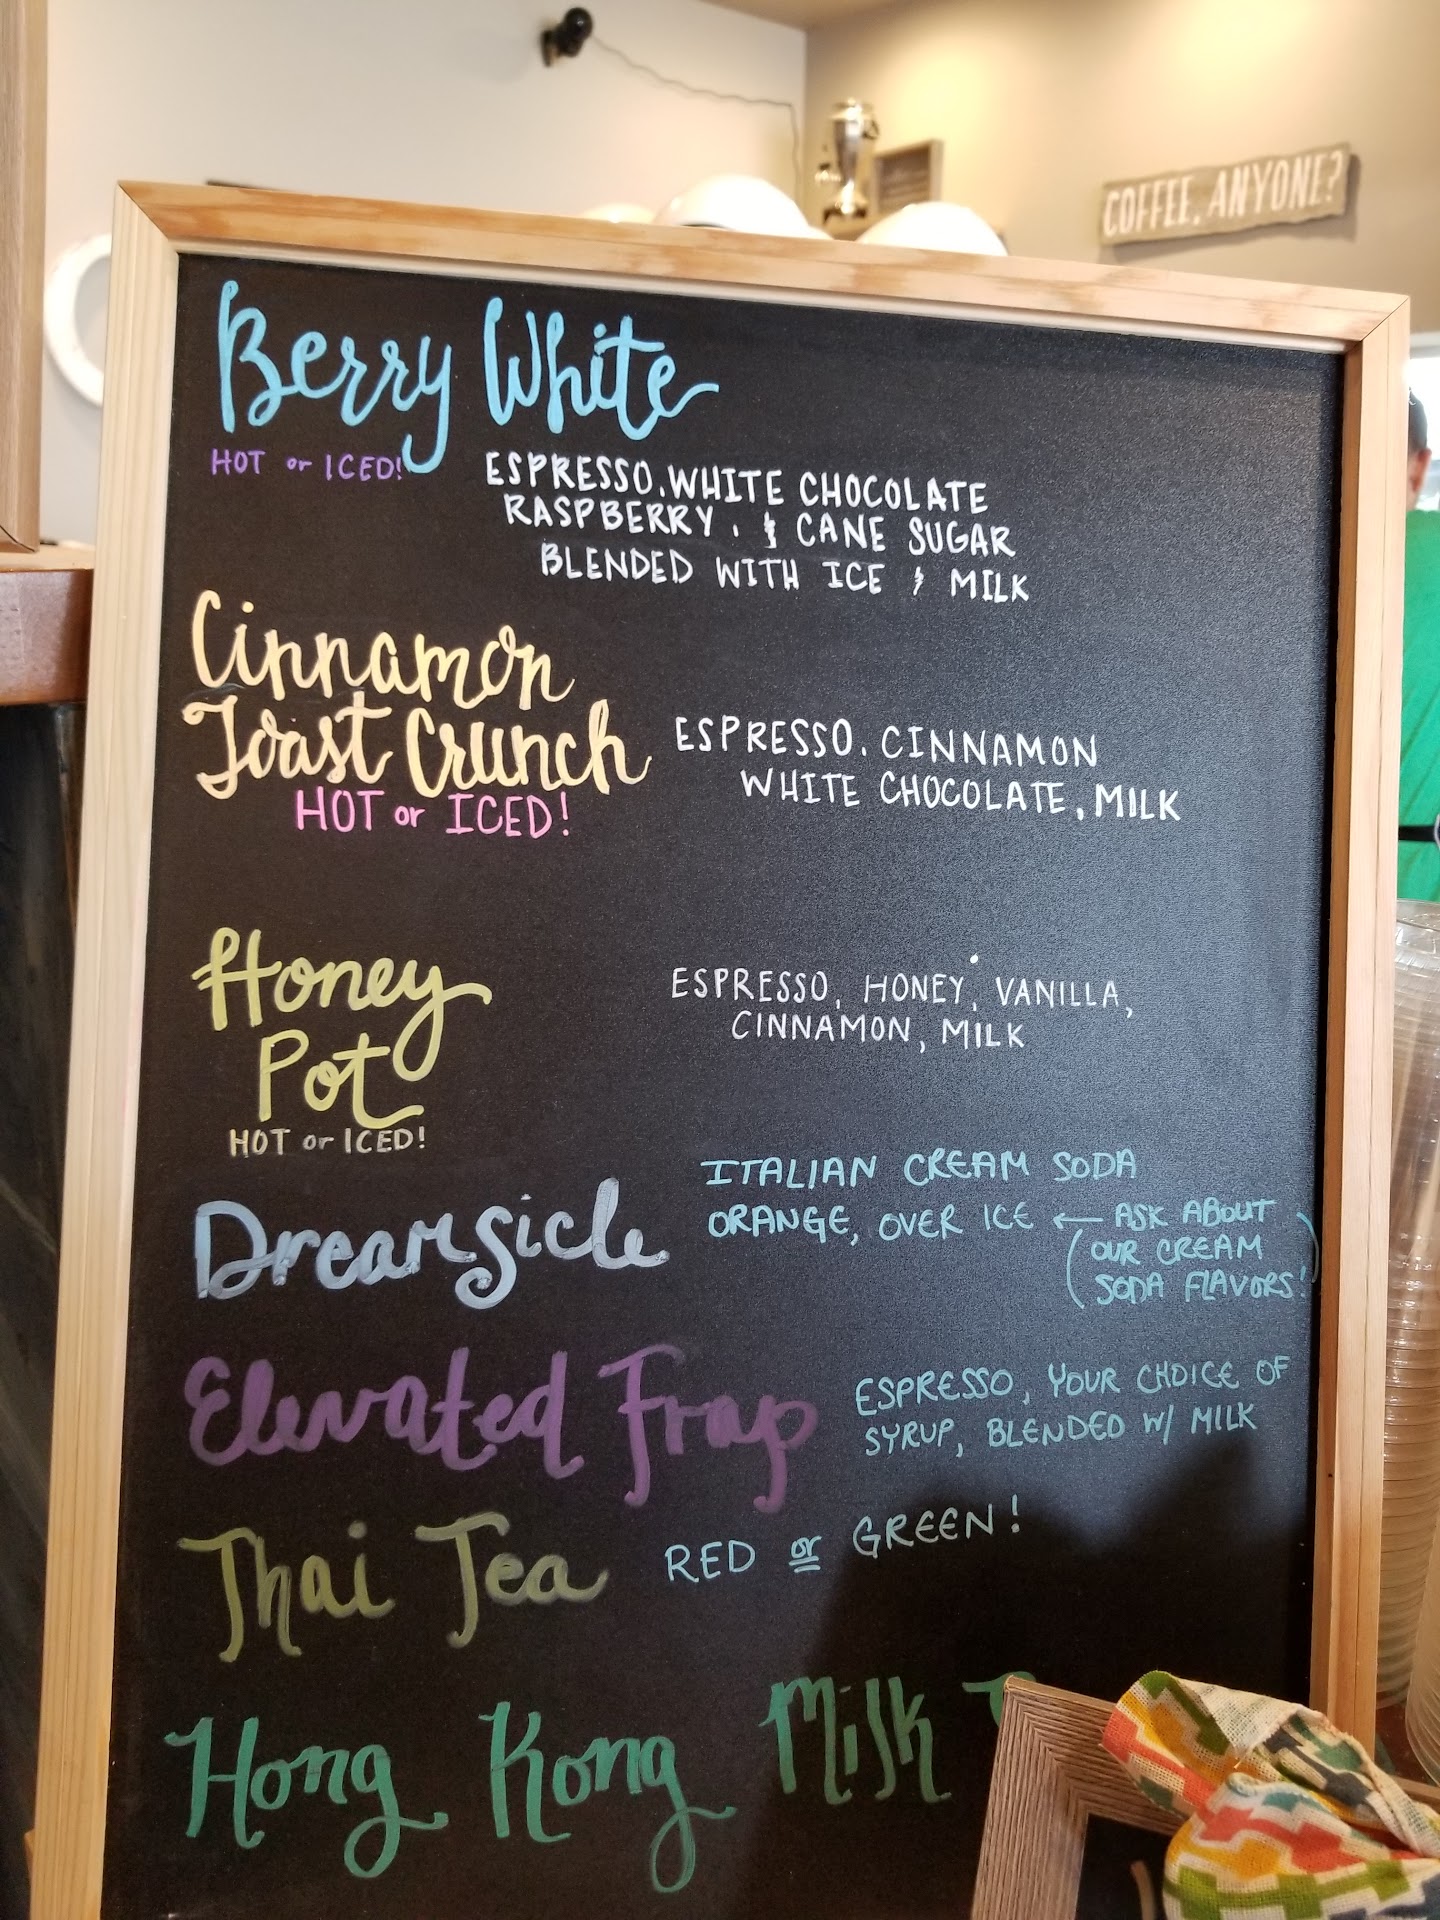 COFFEE, ANYONE?
Berry White
HOT or ICED!
ESPRESSO, WHITE CHOCOLATE
RASPBERRY, & CANE SUGAR
BLENDED WITH ICE & MILK
Cinnamon
Toast Crunch
HOT or ICED!
ESPRESSO, CINNAMON
WHITE CHOCOLATE, MILK
Honey
Pot
HOT or ICED!
ESPRESSO, HONEY, VANILLA,
CINNAMON, MILK
Dreamsicle
ITALIAN CREAM SODA
ORANGE, OVER ICE ← ASK ABOUT
OUR CREAM
SODA FLAVORS!
Elevated Frap
ESPRESSO, YOUR CHOICE OF
SYRUP, BLENDED W/ MILK
Thai Tea
RED or GREEN!
Hong Kong Milk